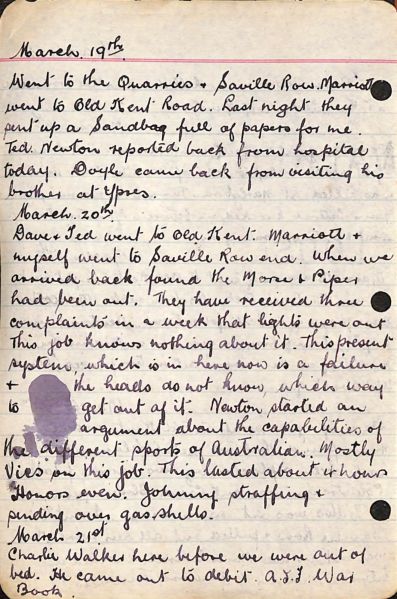 March. 19th.
Went to the Quarries + Saville Row. Marriott
went to Old Kent Road. Last night they
sent up a Sandbag full of papers for me.
Ted. Newton reported back from hospital
today. Doyle came back from visiting his
brother at Ypres.
March. 20th.
Dave + Ted went to Old Kent. Marriott +
myself went to Saville Row end. When we
arrived back found the Morse + Piper
had been out. They have received three
complaints in a week that lights were out
This job knows nothing about it. This present
system which is in here now is a failure
+ the heads do not know, which way
to get out of it. Newton started an
argument about the capabilities of
the different sports of Australian. Mostly
Vic's on this job. This lasted about 4 hours
Honors even. Johnny straffing +
sending over gas shells.
March 21st
Charlie Walker here before we were out of
bed. He came out to debit. A.I.F. War
Book.